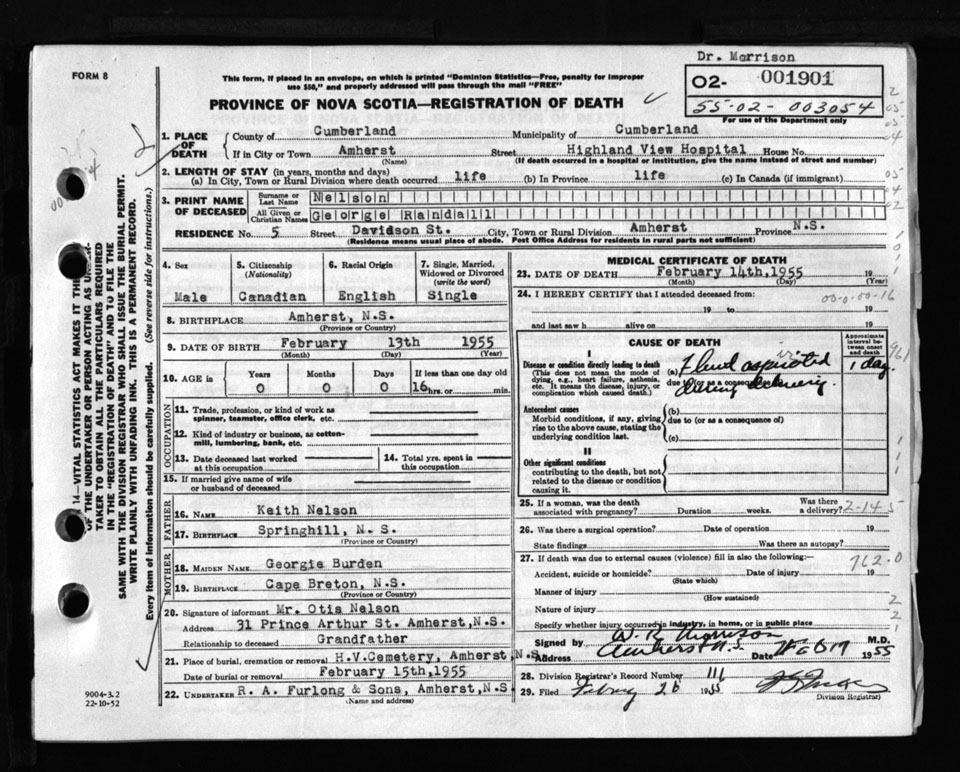 Dr. Morrison
FORM 8
This form, if placed in an envelope, on which is printed "Dominion Statistics—Free, penalty for improper
use $50," and properly addressed will pass through the mail "FREE"
02- 001901
55-02-003054
For use of the Department only
PROVINCE OF NOVA SCOTIA—REGISTRATION OF DEATH
1. PLACE OF DEATH
County of Cumberland Municipality of Cumberland
If in City or Town Amherst Street Highland View Hospital House No.
(Name) (If death occurred in a hospital or institution, give the name instead of street and number)
2. LENGTH OF STAY (in years, months and days)
(a) In City, Town or Rural Division where death occurred life (b) In Province life (c) In Canada (if immigrant)
3. PRINT NAME OF DECEASED
Surname or Last Name Nelson
All Given or Christian Names George Randall
RESIDENCE No. 5 Street Davidson St. City, Town or Rural Division Amherst Province N.S.
(Residence means usual place of abode. Post Office Address for residents in rural parts not sufficient)
4. Sex 5. Citizenship (Nationality) 6. Racial Origin 7. Single, Married, Widowed or Divorced (write the word)
Male Canadian English Single
8. BIRTHPLACE Amherst, N.S.
(Province or Country)
9. DATE OF BIRTH February 13th 1955
(Month) (Day) (Year)
10. AGE in Years Months Days If less than one day old
0 0 0 16 hrs. or min.
OCCUPATION
11. Trade, profession, or kind of work as
spinner, teamster, office clerk, etc.
12. Kind of industry or business, as cotton-
mill, lumbering, bank, etc.
13. Date deceased last worked at this occupation
14. Total yrs. spent in this occupation
15. If married give name of wife
or husband of deceased
FATHER
16. NAME Keith Nelson
17. BIRTHPLACE Springhill, N. S.
(Province or Country)
MOTHER
18. MAIDEN NAME Georgie Burden
19. BIRTHPLACE Cape Breton, N.S.
(Province or Country)
20. Signature of informant Mr. Otis Nelson
Address 31 Prince Arthur St. Amherst, N.S.
Relationship to deceased Grandfather
21. Place of burial, cremation or removal H.V.Cemetery, Amherst, N.S
Date of burial or removal February 15th, 1955
22. UNDERTAKER R. A. Furlong & Sons, Amherst, N.S
(Name and address)
MEDICAL CERTIFICATE OF DEATH
23. DATE OF DEATH February 14th, 1955 19
(Month) (Day)
24. I HEREBY CERTIFY that I attended deceased from:
00-0-00-16
19 to 19
and last saw h alive on 19
CAUSE OF DEATH
Approximate interval between onset and death
I
Disease or condition directly leading to death
(This does not mean the mode of
dying, e.g., heart failure, asthenia,
etc. It means the disease, injury, or
complication which caused death.)
(a) Fluid aspirated 1 day
due to (or as a consequence of)
during delivery.
Antecedent causes
Morbid conditions, if any, giving
rise to the above cause, stating the
underlying condition last.
(b)
due to (or as a consequence of)
(c)
II
Other significant conditions
contributing to the death, but not
related to the disease or condition
causing it.
25. If a woman, was the death
associated with pregnancy? Duration weeks. Was there a delivery?
2-14-5
26. Was there a surgical operation? Date of operation 19
State findings Was there an autopsy?
27. If death was due to external causes (violence) fill in also the following:—
762.0
Accident, suicide or homicide? Date of injury 19
(State which)
Manner of injury
(How sustained)
Nature of injury
Specify whether injury occurred in industry, in home, or in public place
Signed by W. R. Morrison M.D.
Address Amherst N.S. Date Feb 17 1955
28. Division Registrar's Record Number 111
29. Filed February 26 1955
Division Registrar)
14—VITAL STATISTICS ACT MAKES IT THE
OF THE UNDERTAKER OR PERSON ACTING AS UNDER-
TAKER TO OBTAIN ALL THE PARTICULARS REQUIRED
IN THE "REGISTRATION OF DEATH" AND TO FILE THE
SAME WITH THE DIVISION REGISTRAR WHO SHALL ISSUE THE BURIAL PERMIT.
WRITE PLAINLY WITH UNFADING INK. THIS IS A PERMANENT RECORD.
Every item of information should be carefully supplied. (See reverse side for instructions.)
9004-3.2
22-10-52